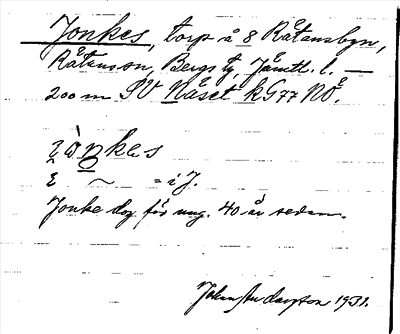 Jonkes, torp å 8 Råtansbyn,
Råtans sn, Bergs tg, Jämtl. l. —
200 m SV Nåset kG77 NÖ.
kes
~ = i J.
Jonke dog för ung. 40 år sedan.
Johan Anderson 1931.